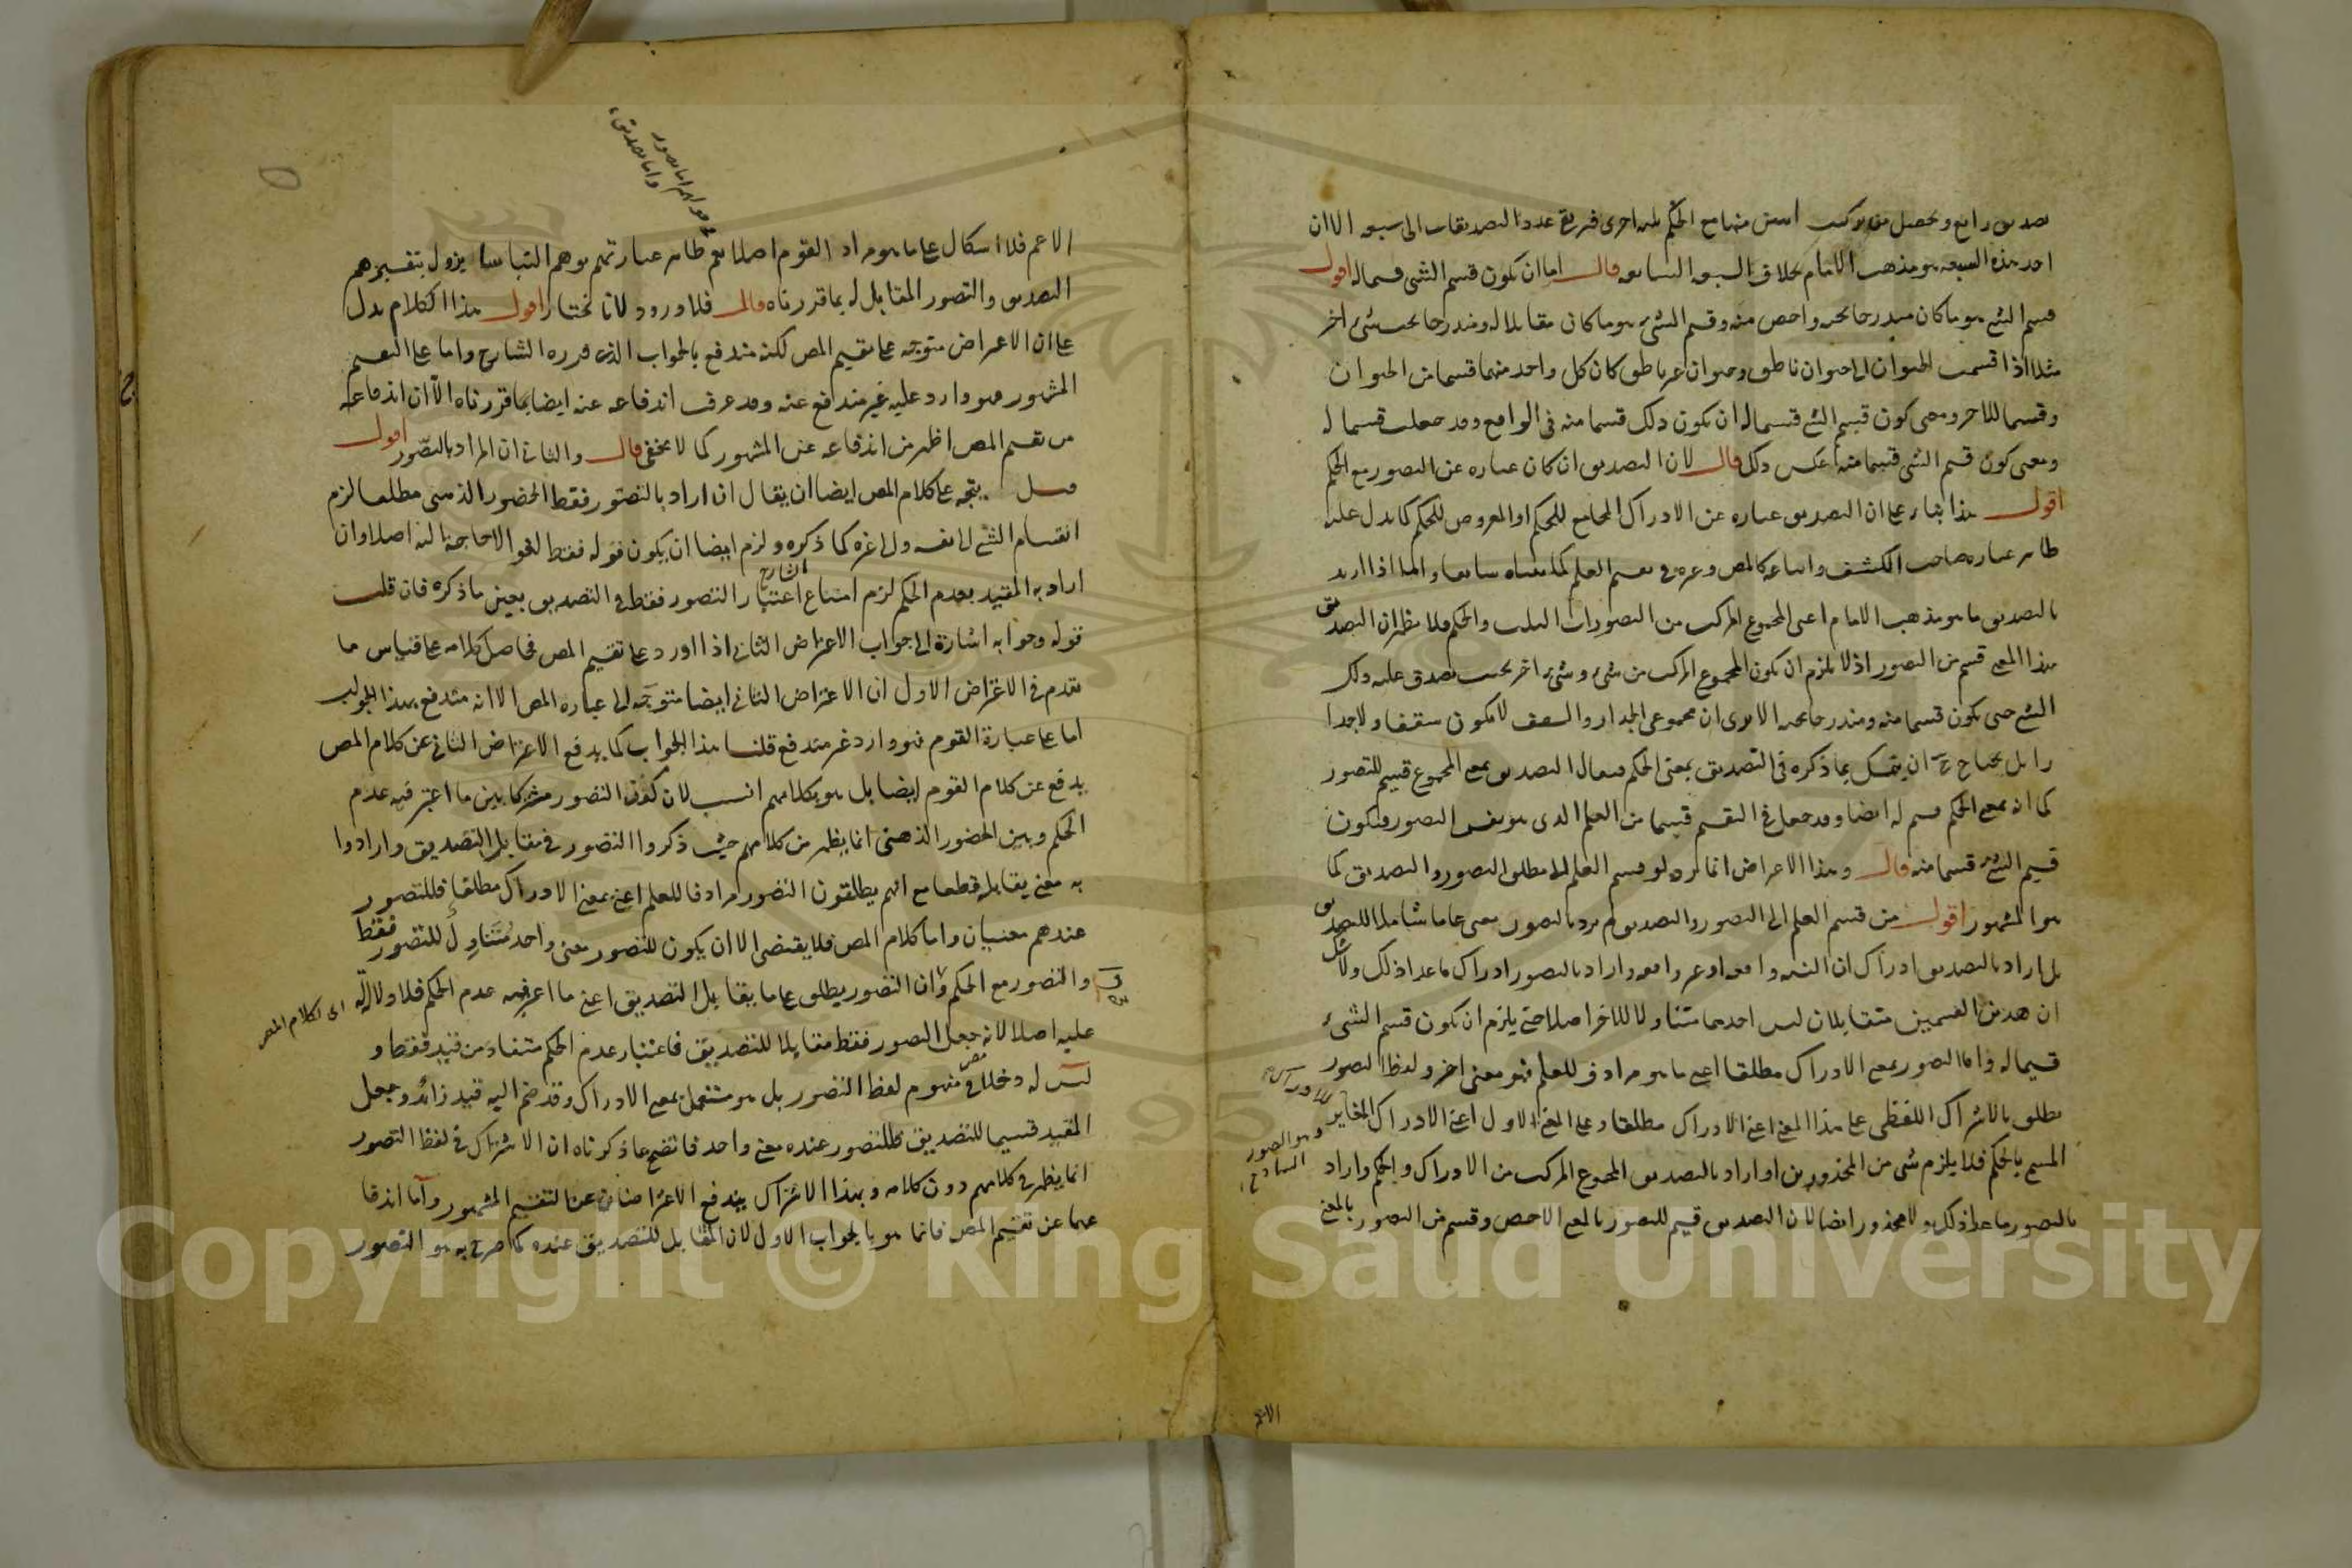 تصديق رابع ويحصل من تركيب اثنين منها مع الحكم ثلثة اخرى فيرتقي عدد التصديقات الى سبعة الا ان
احد هذه السبعة هو مذهب الامام بخلاف السبعة السابقة قال اما ان يكون قسم الشئ قسيما له اقول
قسم الشئ هو ما كان مندرجا تحته واخص منه وقسيم الشئ هو ما كان مقابلا له ومندرجا تحت شئ اخر
مثلا اذا قسمت الحيوان الى حيوان ناطق وحيوان غير ناطق كان كل واحد منهما قسما من الحيوان
وقسيما للاخر ومعنى كون قسم الشئ قسيما له ان يكون ذلك قسما منه في الواقع وقد جعلت قسيما له
ومعنى كون قسيم الشئ قسما منه عكس ذلك قال لان التصديق ان كان عبارة عن التصور مع الحكم
اقول هذا بناء على ان التصديق عبارة عن الادراك المجامع للحكم او المعروض للحكم كما يدل عليه
ظاهر عبارة صاحب الكشف واتباعه كالمص وغيره في تقسيم العلم كما بيناه سابقا واما اذا اريد
بالتصديق ما هو مذهب الامام اعنى المجموع المركب من التصورات الثلث والحكم فلا يظهر ان التصديق
بهذا المعنى قسم من التصور اذ لا يلزم ان يكون المجموع المركب من شئ وشئ اخر بحيث يصدق عليه ذلك
الشئ حتى يكون قسما منه ومندرجا تحته الا يرى ان مجموع الجدار والسقف لا يكون سقفا ولا جدا
را بل يحتاج ح ان يتمسك بما ذكره في التصديق بمعنى الحكم فيقال التصديق بمعنى المجموع قسيم للتصور
كما انه بمعنى الحكم قسيم له ايضا وقد جعل في التقسيم قسما من العلم الذى هو نفس التصور فيكون
قسيم الشئ قسما منه قال وهذا الاعتراض انما يرد لو قسم العلم الى مطلق التصور والتصديق كما
هو المشهور اقول من قسم العلم الى التصور والتصديق لم يرد بالتصور معنى عاما شاملا للتصديق
بل اراد بالتصديق ادراك ان النسبة واقعة او غير واقعة واراد بالتصور ادراك ما عدا ذلك ولا شك
ان هذين القسمين متقابلان ليس احدهما متناولا للاخر اصلا حتى يلزم ان يكون قسم الشئ
قسيما له واما التصور بمعنى الادراك مطلقا اعنى ما هو مرادف للعلم فهو معنى اخر ولفظ التصور
يطلق بالاشتراك اللفظى على هذا المعنى اعنى الادراك مطلقا وعلى المعنى الاول اعنى الادراك المغاير للادراك
وهو التصور الساذج
المسمى بالحكم فلا يلزم شئ من المحذورين او اراد بالتصديق المجموع المركب من الادراك والحكم واراد
بالتصور ما عدا ذلك ولا محذور ايضا لان التصديق قسيم للتصور بالمعنى الاخص وقسم من التصور بالمعنى
الاعم
هو اما تصور
واما تصديق
الاعم فلا اشكال على ما هو مراد القوم اصلا نعم ظاهر عبارتهم يوهم التباسا يزول بتفسيرهم
التصديق والتصور المقابل له بما قررناه قال فلا ورود لانا نختار اقول هذا الكلام يدل
على ان الاعتراض متوجه على تقسيم المص لكنه مندفع بالجواب الذى قرره الشارح واما على التقسيم
المشهور فهو وارد عليه غير مندفع عنه وقد عرفت اندفاعه عنه ايضا بما قررناه الا ان اندفاعه
من تقسيم المص اظهر من اندفاعه عن المشهور كما لا يخفى قال والثانى ان المراد بالتصور اقول
قيل يتجه على كلام المص ايضا ان يقال ان اراد بالتصور فقط الحضور الذهنى مطلقا لزم
انقسام الشئ الى نفسه والى غيره كما ذكره ولزم ايضا ان يكون قوله فقط لغوا لا حاجة اليه اصلا وان
اراد به المقيد بعدم الحكم لزم امتناع اعتبار التصور فقط في التصديق بعين ما ذكره الشارح فان قلت
قوله وجوابه اشارة الى جواب الاعتراض الثانى اذا اورد على تقسيم المص فحاصل كلامه على قياس ما
تقدم في الاعتراض الاول ان الاعتراض الثانى ايضا متوجه الى عبارة المص الا انه مندفع بهذا الجواب
اما على عبارة القوم فهو وارد غير مندفع قلنا هذا الجواب كما يدفع الاعتراض الثانى عن كلام المص
يدفع عن كلام القوم ايضا بل هو بكلامهم انسب لان كون التصور مشتركا بين ما اعتبر فيه عدم
الحكم وبين الحضور الذهنى انما يظهر من كلامهم حيث ذكروا التصور في مقابل التصديق وارادوا
به معنى يقابله قطعا مع انهم يطلقون التصور مرادفا للعلم اعنى بمعنى الادراك مطلقا فللتصور
عندهم معنيان واما كلام المص فلا يقتضى الا ان يكون للتصور معنى واحد متناول للتصور فقط
والتصور مع الحكم وان التصور يطلق على ما يقابل التصديق اعنى ما اعتبر فيه عدم الحكم فلا دلالة
اى لكلام المص
عليه اصلا لانه جعل التصور فقط مقابلا للتصديق فاعتبار عدم الحكم مستفاد من قيد فقط و
ليس له دخل في مفهوم لفظ التصور بل هو مستعمل بمعنى الادراك وقد ضم اليه قيد زائد وجعل
المقيد قسيما للتصديق فللتصور عنده معنى واحد فاتضح بما ذكرناه ان الاشتراك في لفظ التصور
انما يظهر في كلامهم دون كلامه وبهذا الاشتراك يندفع الاعتراضان عن التقسيم المشهور واما اندفا
عهما عن تقسيم المص فانما هو بالجواب الاول لان المقابل للتصديق عنده كما صرح به هو التصور
Copyright © King Saud University